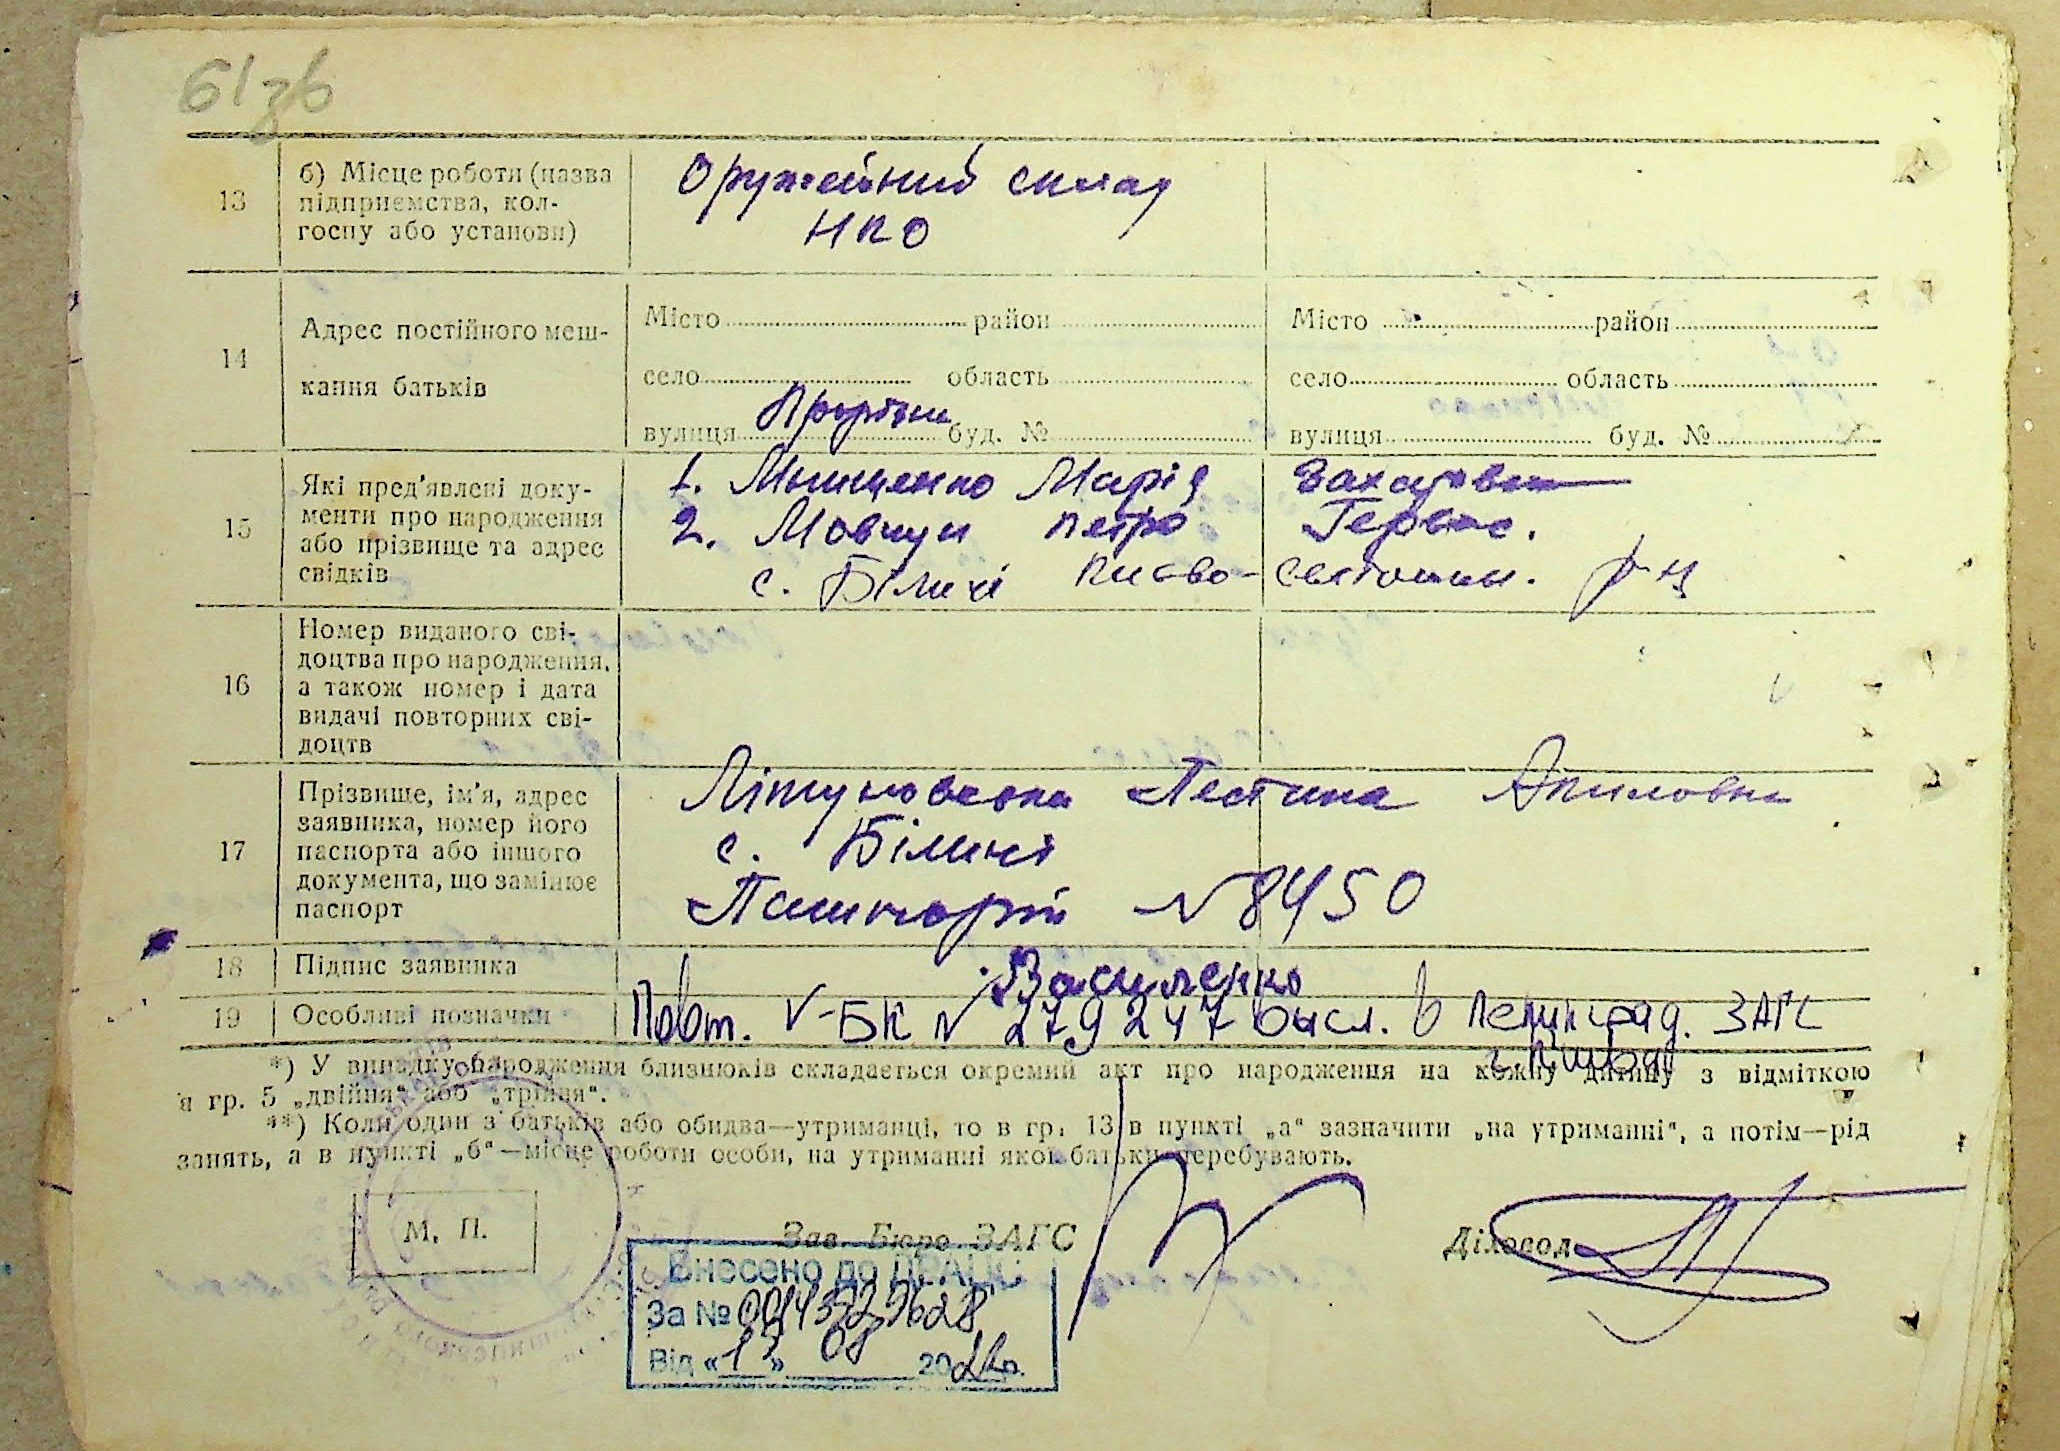 61зв
13
б) Місце роботи (назва
підприємства, кол-
госпу або установи)
Оружейний склад
НКО
14
Адрес постійного меш-
кання батьків
Місто район
село область
вулиця Прорізна буд. №
Місто район
село область
вулиця буд. №
15
Які пред'явлені доку-
менти про народження
або прізвище та адрес
свідків
1. Мищенко Марія Захаровна
2. Мовчун Петро Гервас.
с. Біличі Києво-Святошин. р-н
16
Номер виданого сві-
доцтва про народження,
а також номер і дата
видачі повторних сві-
доцтв
17
Прізвище, ім'я, адрес
заявника, номер його
паспорта або іншого
документа, що замінює
паспорт
с. Біличі
Пашпорт № 8450
18
Підпис заявника
Василенко
19
Особливі позначки
Повт. V-БК № 279247 высл. в Ленинград. ЗАГС
*) У випадку народження близнюків складається окремий акт про народження на кожну дитину з відміткою
в гр. 5 „двійня“ або „трійня“.
**) Коли один з батьків або обидва—утриманці, то в гр. 13 в пункті „а“ зазначити „на утриманні“, а потім—рід
занять, а в пункті „б“—місце роботи особи, на утриманні якої батьки перебувають.
М. П.
Зав. Бюро ЗАГС
Діловод
Внесено до ДРАЦС
За №
Від « » 08 20 р.